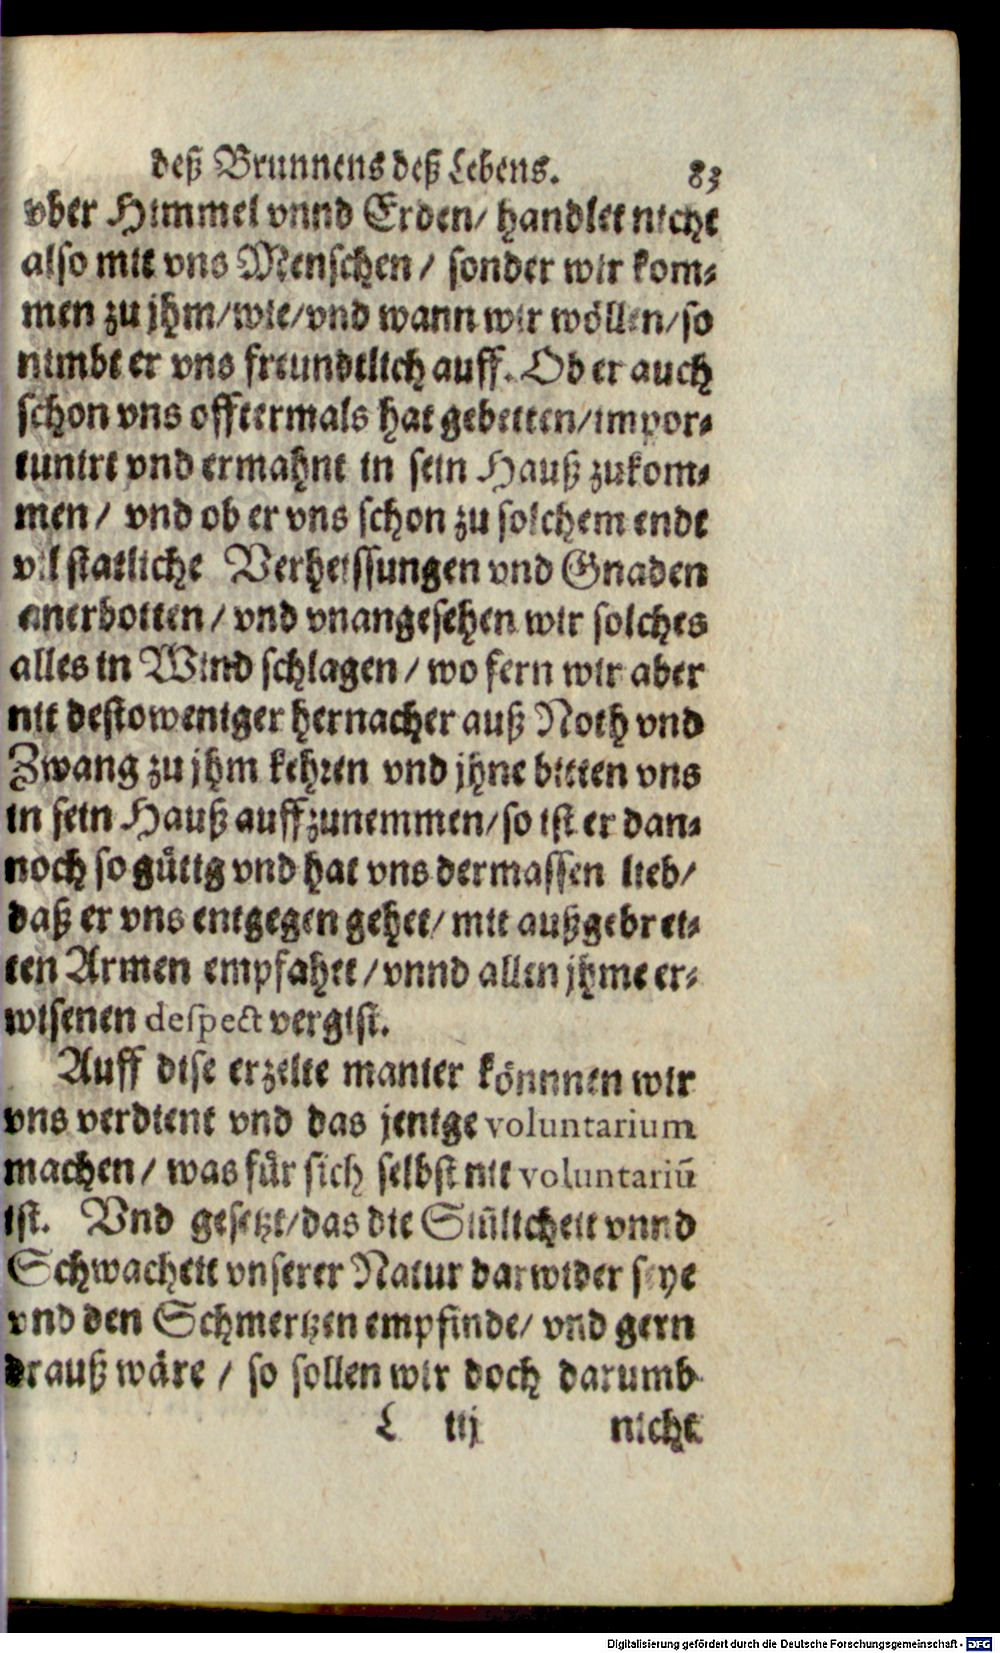 deß Brunnens deß Lebens. 83
vber Himmel vnnd Erden/ handlet nicht
also mit vns Menschen / sonder wir kom-
men zu jhm/wie/vnd wann wir wöllen/so
nimbt er vns freundtlich auff. Ob er auch
schon vns offtermals hat gebetten/impor-
tunirt vnd ermahnt in sein Hauß zukom-
men / vnd ob er vns schon zu solchem ende
vil statliche Verheissungen vnd Gnaden
anerbotten / vnd vnangesehen wir solches
alles in Wind schlagen / wo fern wir aber
nit destoweniger hernacher auß Noth vnd
Zwang zu jhm kehren vnd jhne bitten vns
in sein Hauß auffzunemmen/so ist er dan-
noch so gütig vnd hat vns dermassen lieb/
daß er vns entgegen gehet/ mit außgebrei-
ten Armen empfahet / vnnd allen jhme er-
wisenen despect vergist.
Auff dise erzelte manier könnnen wir
vns verdient vnd das jenige voluntarium
machen / was für sich selbst nit voluntariū
ist. Vnd gesetzt/das die Siñlicheit vnnd
Schwacheit vnserer Natur darwider seye
vnd den Schmertzen empfinde/ vnd gern
drauß wäre / so sollen wir doch darumb
L iij nicht
Digitalisierung gefördert durch die Deutsche Forschungsgemeinschaft - DFG